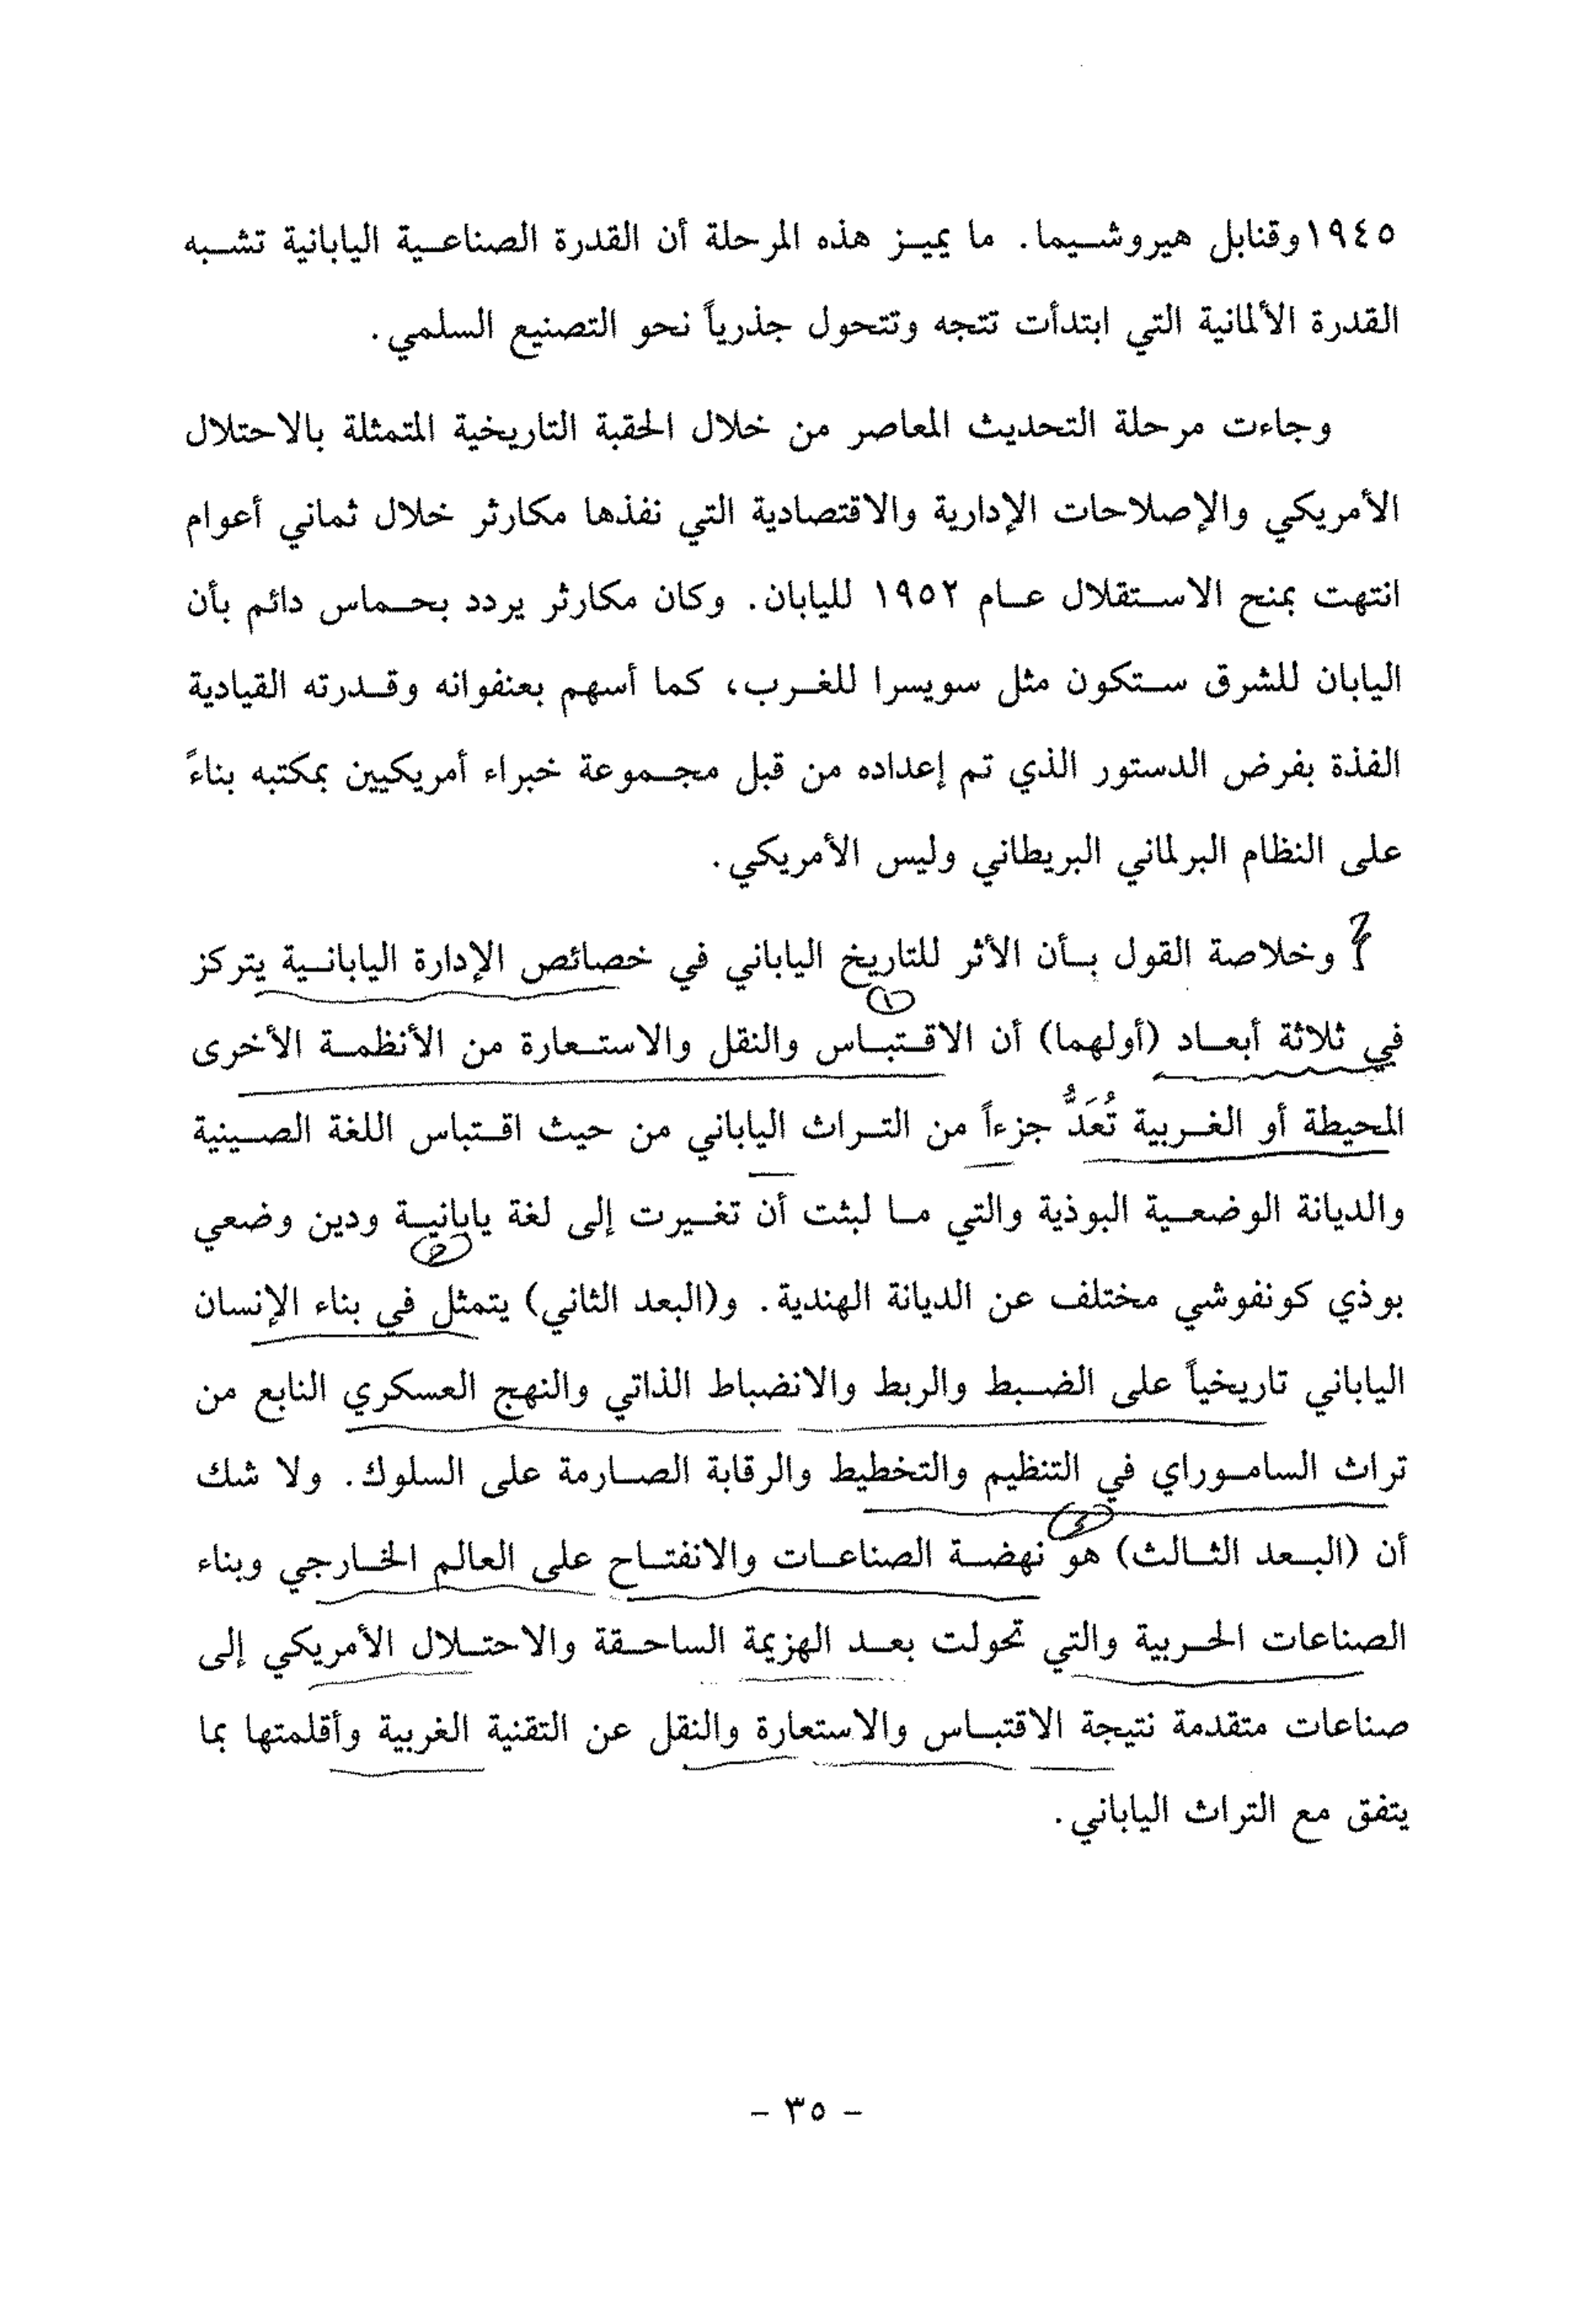 ١٩٤٥وقنابل هيروشيما. ما يميز هذه المرحلة أن القدرة الصناعية اليابانية تشبه
القدرة الألمانية التي ابتدأت تتجه وتتحول جذرياً نحو التصنيع السلمي.
وجاءت مرحلة التحديث المعاصر من خلال الحقبة التاريخية المتمثلة بالاحتلال
الأمريكي والإصلاحات الإدارية والاقتصادية التي نفذها مكارثر خلال ثماني أعوام
انتهت بمنح الاستقلال عام ١٩٥٢ لليابان. وكان مكارثر يردد بحماس دائم بأن
اليابان للشرق ستكون مثل سويسرا للغرب، كما أسهم بعنفوانه وقدرته القيادية
الفذة بفرض الدستور الذي تم إعداده من قبل مجموعة خبراء أمريكيين بمكتبه بناءً
على النظام البرلماني البريطاني وليس الأمريكي.
وخلاصة القول بأن الأثر للتاريخ الياباني في خصائص الإدارة اليابانية يتركز
في ثلاثة أبعاد (أولهما) أن الاقتباس والنقل والاستعارة من الأنظمة الأخرى
المحيطة أو الغربية تُعَدُّ جزءاً من التراث الياباني من حيث اقتباس اللغة الصينية
والديانة الوضعية البوذية والتي ما لبثت أن تغيرت إلى لغة يابانية ودين وضعي
بوذي كونفوشي مختلف عن الديانة الهندية. و(البعد الثاني) يتمثل في بناء الإنسان
الياباني تاريخياً على الضبط والربط والانضباط الذاتي والنهج العسكري النابع من
تراث الساموراي في التنظيم والتخطيط والرقابة الصارمة على السلوك. ولا شك
أن (البعد الثالث) هو نهضة الصناعات والانفتاح على العالم الخارجي وبناء
الصناعات الحربية والتي تحولت بعد الهزيمة الساحقة والاحتلال الأمريكي إلى
صناعات متقدمة نتيجة الاقتباس والاستعارة والنقل عن التقنية الغربية وأقلمتها بما
يتفق مع التراث الياباني.
- ٣٥ -